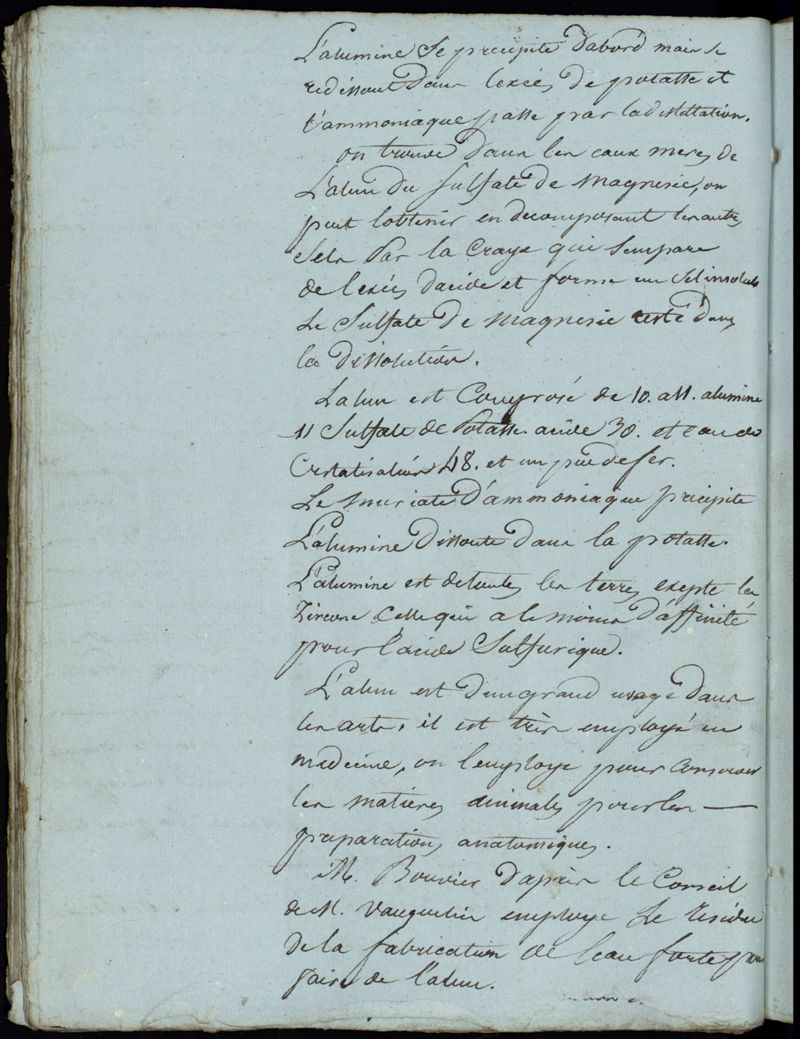 L'alumine se precipite d'abord mais se
redissout dans lexcés de potasse et
l'ammoniaque passe par la distillation.
on trouve dans les eaux meres de
L'alun du sulfate de magnesie, on
peut lobtenir en decomposant les autres
sels Par la Craye qui sempare
de lexcés dacide et forme un sel insoluble
Le sulfate de magnesie reste dans
la dissolution.
Lalun est Composé de 10. alumine
Sulfate de Potasse. acide 30. et eau de
Cristalisation 48. et un peu de fer.
Le muriate d'ammoniaque precipite
L'alumine dissoute dans la potasse.
L'alumine est detoutes les terres exepte la
Zircone Celle qui a le moins d'affinité
pour l'acide Sulfurique.
L'alun est d'un grand usage dans
les arts, il est très employé en
medecine, on l'employe pour Conserver
les matieres animales pour les —
preparations anatomiques.
M. Bouvier d'après le Conseil
de M. Vauquelin employe Le residu
de la fabrication de leau forte pour
faire de l'alun.